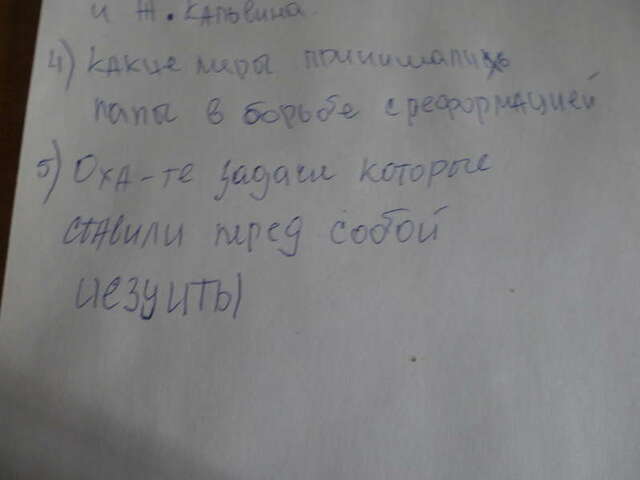 и Ж. Кальвина.
4) Какие меры принимали
папы в борьбе с реформацией
5) Оха-те задачи которые
ставили перед собой
иезуиты